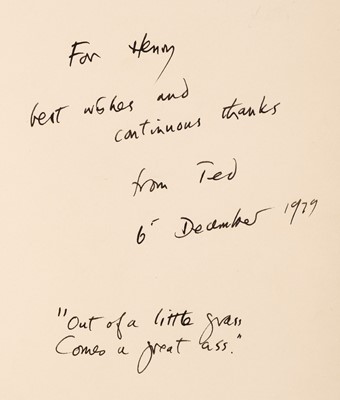 For Henry
best wishes and
continuous thanks
from Ted
6 December 1979
"Out of a little grass
Comes a great ass."